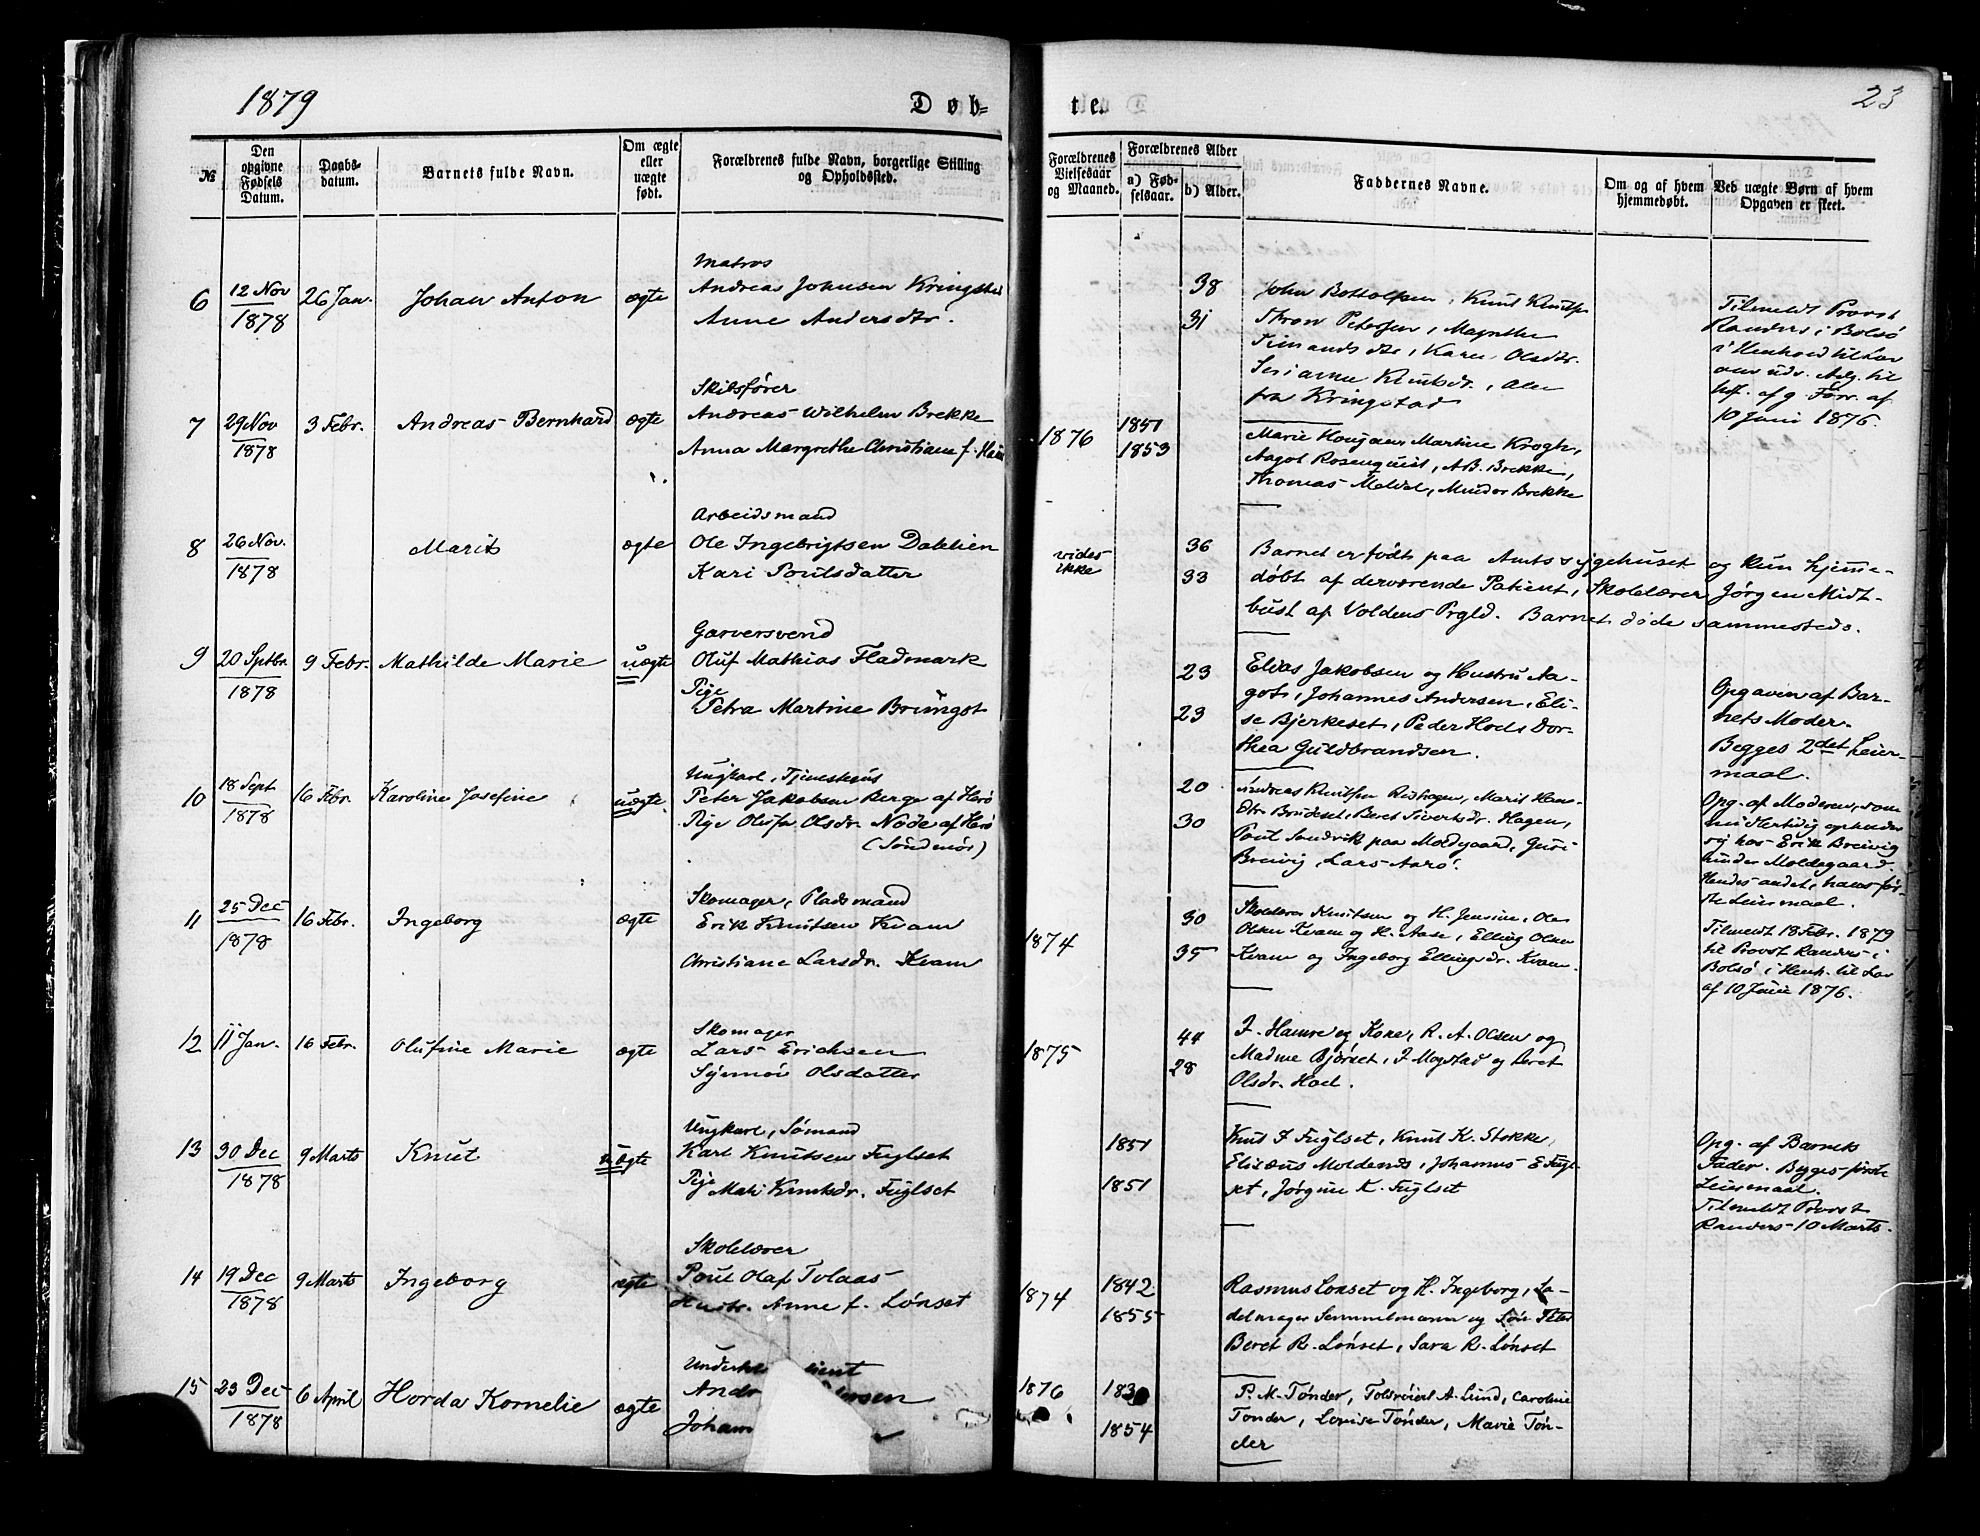 1879
Døb-
te.
23
№
Den opgivne Fødsels Datum.
Daabs-datum.
Barnets fulde Navn.
Om ægte eller uægte født.
Forældrenes fulde Navn, borgerlige Stilling og Opholdssted.
Forældrenes Vielsesaar og Maaned.
Forældrenes Alder
a) Fødselsaar.
b) Alder.
Faddernes Navne.
Om og af hvem hjemmedøbt.
Ved uægte Børn af hvem Opgaven er skeet.
6
12 Nov
1878
26 Jan.
Johan Anton
ægte
Matros
Andreas Johnsen Kringstad
Anne Andersdtr.
38
31
John Bottolfsen, Knut Knuts
Thron Petersen, Magnthe
Simandsdtr, Karen Olsdtr.
Serianne Knutsdr, Alle
fra Kringstad
Tilmeldt Provst
Randers i Bolsø
i Henhold til Lov
10 Juni 1876.
7
29 Nov
1878
3 Febr.
Andreas Bernhard
ægte
Skibsfører
Andreas Wilhelm Brekke
Anna Margrethe Christiane f.
1876
1851
1853
Marie Martine Krogh,
Aagot Rosenquist, A.B. Brekke,
Thomas Meldal, Mindor Brekke
8
26 Nov.
1878
Marit
ægte
Arbeidsmand
Ole Ingebrigtsen Dahlien
Kari Poulsdatter
vides
ikke
36
33
Barnet er født paa Amtssygehuset og kun hjemme-
døbt af derværende Patient, Skolelærer Jørgen Midt-
bust af Voldens Prgld. Barnet døde sammesteds.
9
20 Septbr.
1878
9 Febr.
Mathilde Marie
uægte
Garversvend
Oluf Mathias Fladmark
Pige
Petra Martine Brungot
23
23
Elias Jakobsen og Hustru Aa-
got, Johannes Andersen, Eli-
se Bjerkeset, Peder Hods Dor-
thea Guldbrandsen.
Opgaven af Bar-
nets Moder.
Begges 2det Leier-
maal.
10
18 Sept
1878
16 Febr.
Karoline Josefine
uægte
Ungkarl, Tjenestegut
Peter Jakobsen Berge af Herø
Pige Olufa Olsdr. Nøde af Herø
(Søndmør)
20
30
Andreas Knutsen Rødhagen, Marit Han-
dtr Brudeset, Beret Sivertsdr. Hagen,
Poul Sandvik paa Moldgaard, Guri
Breivig, Lars Aarø.
Opg. af Moderen, som
midlertidig opholder
sig hos Erik Breivig
under Moldegaard.
Hendes andet, hans før-
ste Leiermaal.
11
25 Dec
1878
16 Febr.
Ingeborg
ægte
Skomager, Pladsmand
Erik Knutsen Kvam
Christiane Larsdr. Kvam
1874
30
35
Skolelærer Knutsen og H. Jensine, Ole
Olsen Kvam og H. Aase, Elling Olsen
Kvam og Ingeborg Ellingsdr. Kvam.
Tilmeldt 18 Febr. 1879
til Provst Randers i
Bolsø i Henh. til Lov
af 10 Juni 1876.
12
11 Jan.
16 Febr.
Olufine Marie
ægte
Skomager
Lars Erichsen
Synnøv Olsdatter
1875
44
28
J. Hamre og Kone, R. A. Olsen og
Madme Bjørset, J Mogstad og Beret
Olsdr. Hoel.
13
30 Dec
1878
9 Marts
Knut
uægte
Ungkarl, Sømand
Karl Knutsen Fuglset
Pige
Mali Knutsdr. Fuglset
1851
1851
Knud J Fuglset, Knut K. Stokke,
Elizæus Moldenæs, Johannes E Fugl-
set, Jørgine K. Fuglset
Opg. af Barnets
Fader. Begges første
Leiermaal.
Tilmeldt Provst
Randers 10 Marts.
14
19 Dec
1878
9 Marts
Ingeborg
ægte
Skolelærer
Poul Olaf Tolaas
Hustr. Anne f. Lønset
1874
1842
1855
Rasmus Lønset og H. Ingeborg, Sa-
delmager Semmelmann og Søn Peter
Beret R. Lønset, Sara R. Lønset
15
23 Dec
1878
6 April
Horda Kornelie
ægte
Andr
Johan
1876
183
1854
P. M. Tønder, Toldroiert A. Lund, Caroline
Tønder, Lovise Tønder, Marie Tøn-
der